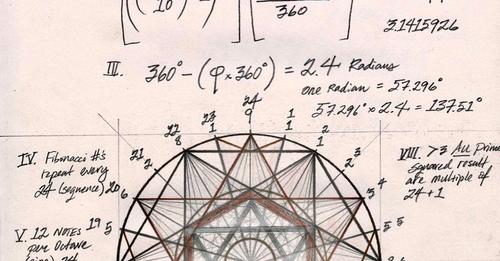 10
360
3.1415926
III. 360° - (φ x 360°) = 2.4 Radians
one Radian = 57.296°
57.296° x 2.4 = 137.51°
24
23 9 1
22 8 1 1 1 2
21 2 2 3
IV. Fibonacci #'s
repeat every
24 (sequence)
20 6 3 4
VIII. >3 All Prime
squared result
are multiple of
24 + 1
V. 12 NOTES
per Octave
19 5 5 5
24